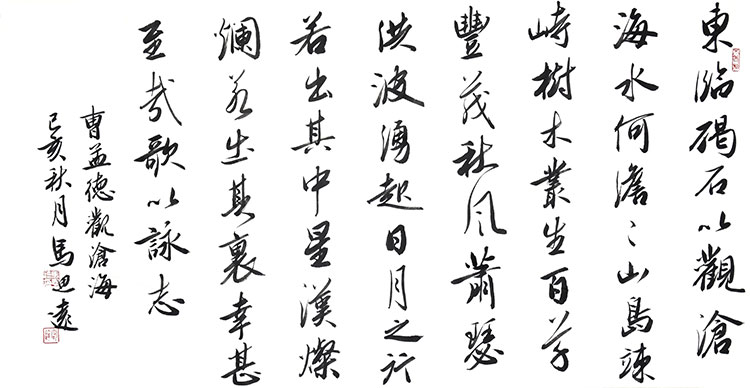 東臨碣石以觀滄
海水何澹〻山島竦
峙樹木叢生百草
豐茂秋風蕭瑟
洪波湧起日月之行
若出其中星漢燦
爛若出其裏幸甚
至哉歌以詠志
曹孟德觀滄海
己亥秋月馬迅遠